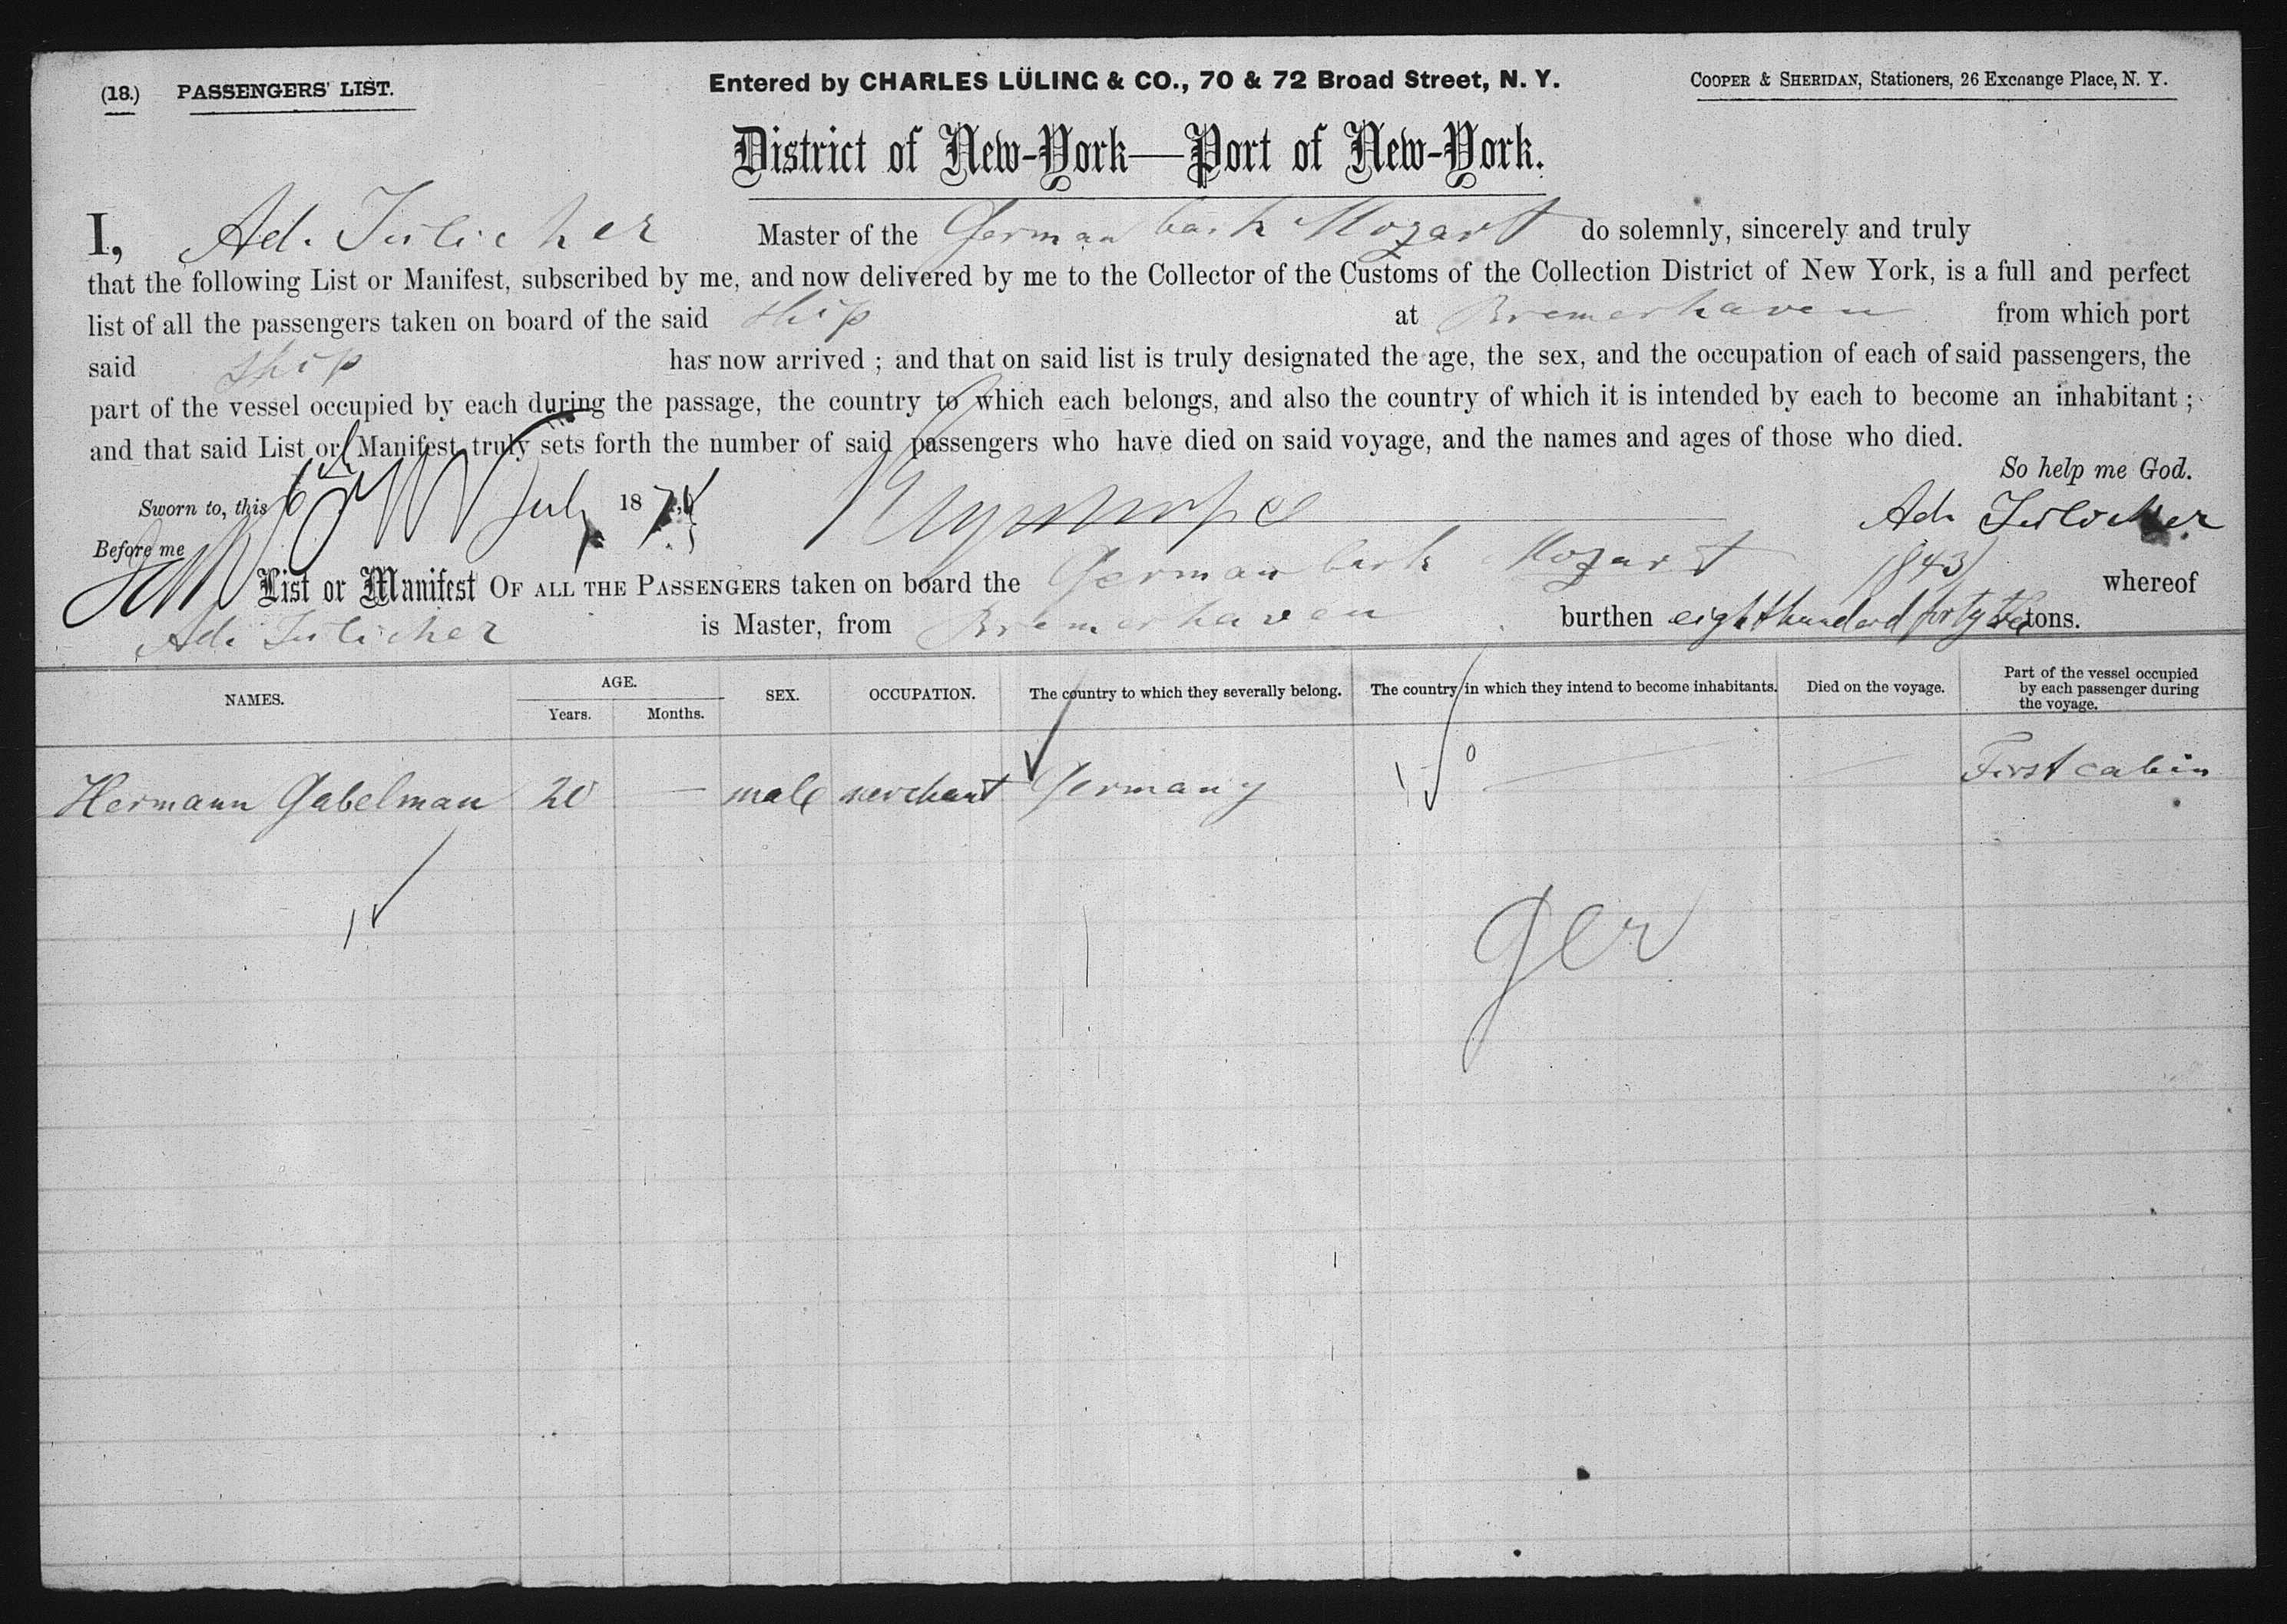 (18.) PASSENGERS' LIST. Entered by CHARLES LÜLING & CO., 70 & 72 Broad Street, N. Y. COOPER & SHERIDAN, Stationers, 26 Exchange Place, N. Y.
District of New-York—Port of New-York.
I, Ad. Master of the German bark Mozart do solemnly, sincerely and truly
that the following List or Manifest, subscribed by me, and now delivered by me to the Collector of the Customs of the Collection District of New York, is a full and perfect
list of all the passengers taken on board of the said ship at Bremerhaven from which port
said ship has now arrived ; and that on said list is truly designated the age, the sex, and the occupation of each of said passengers, the
part of the vessel occupied by each during the passage, the country to which each belongs, and also the country of which it is intended by each to become an inhabitant ;
and that said List or Manifest truly sets forth the number of said passengers who have died on said voyage, and the names and ages of those who died.
So help me God.
Sworn to, this July 187 Ad.
Before me
List or Manifest OF ALL THE PASSENGERS taken on board the German bark Mozart 843 whereof
Ad. is Master, from Bremerhaven burthen eighthundred forty tons.
NAMES. AGE. Years. Months. SEX. OCCUPATION. The country to which they severally belong. The country in which they intend to become inhabitants. Died on the voyage. Part of the vessel occupied by each passenger during the voyage.
Hermann Gabelman 20 — male merchant Germany First cabin
Ger